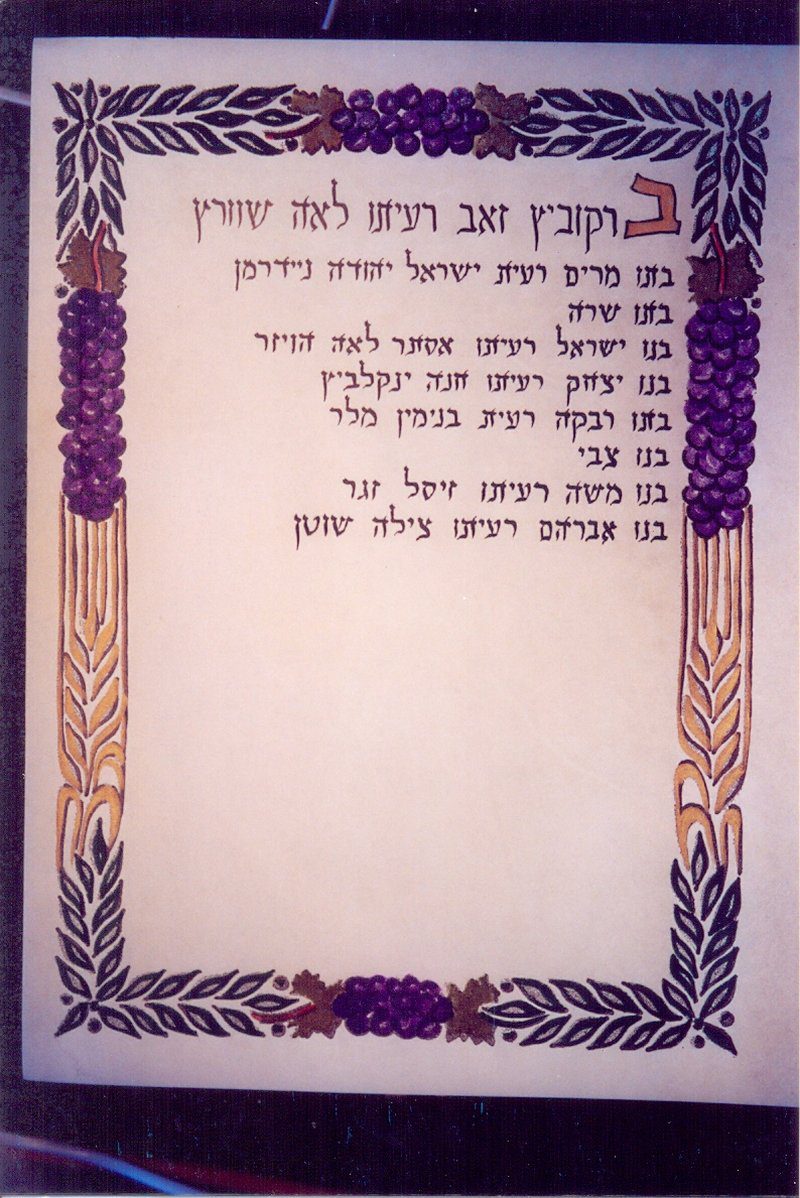 ברקוביץ זאב רעיתו לאה שוורץ
בתו מרים רעית ישראל יהודה ניידרמן
בתו שרה
בנו ישראל רעיתו אסתר לאה הויזר
בנו יצחק רעיתו חנה ינקלביץ
בתו רבקה רעית בנימין מלר
בנו צבי
בנו משה רעיתו זיסל זגר
בנו אברהם רעיתו צילה שוטן